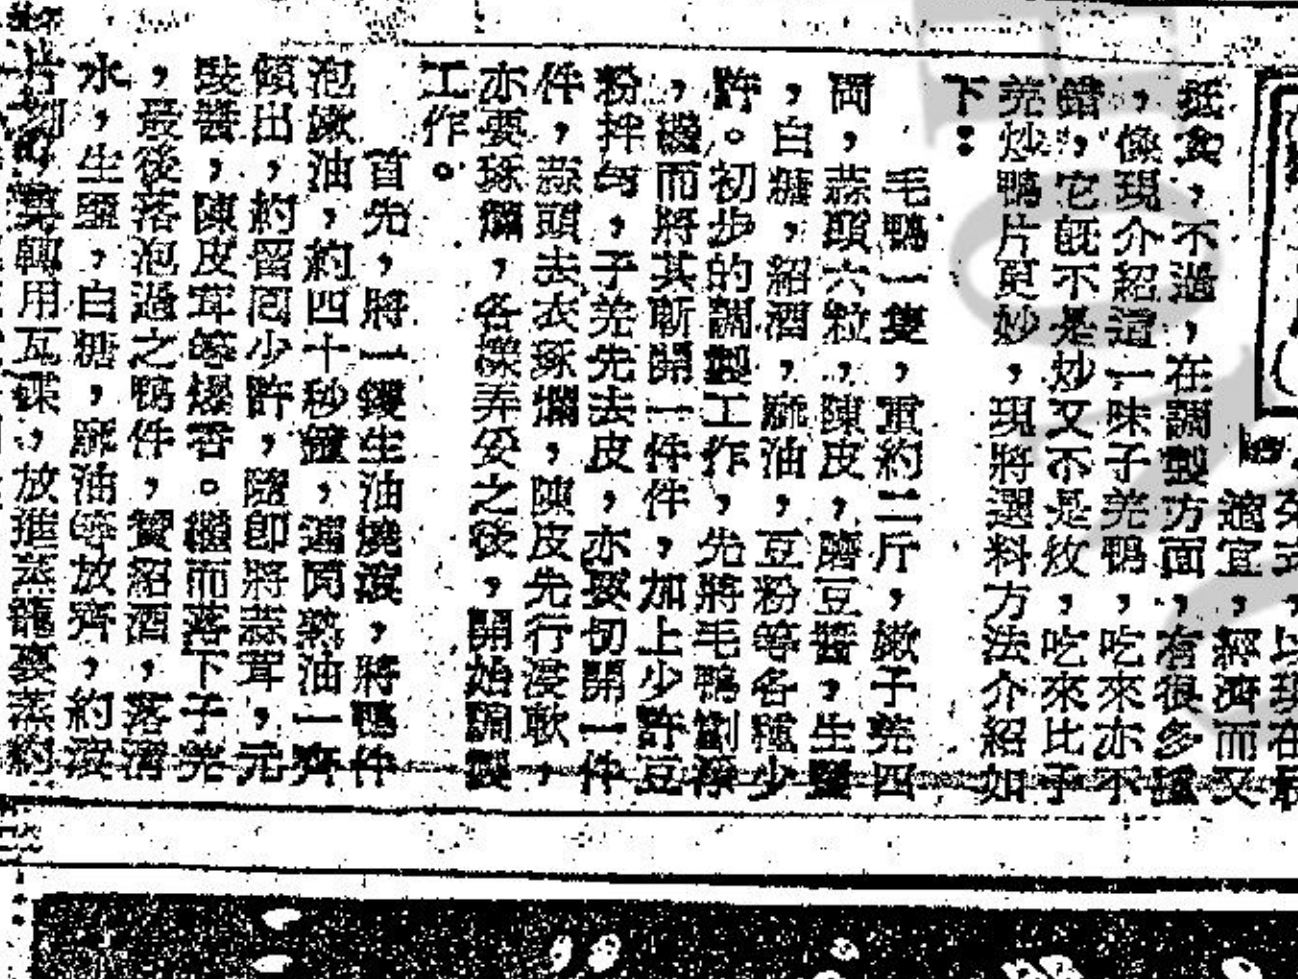 菜式,以現在最
適宜,經濟而又
抵食,不過,在調製方面,有很多種
,像現介紹這一味子羌鴨,吃來亦不
錯,它旣不是炒又不是炆,吃來比子
羌炒鴨片更妙,現將選料方法介紹如
下:
毛鴨一隻,重約二斤,嫩子羌四
両,蒜頭六粒,陳皮,磨豆醬,生鹽
,白糖,紹酒,麻油,豆粉等各種少
許。初步的調製工作,先將毛鴨劏淨
,繼而將其斬開一件件,加上少許豆
粉拌勻,子羌先去皮,亦要切開一件
件,蒜頭去衣琢爛,陳皮先行浸軟,
亦要琢爛,各樣弄妥之後,開始調製
工作。
首先,將一鑊生油燒滾,將鴨件
泡嫩油,約四十秒鐘,連同熟油一齊
傾出,約留囘少許,隨卽將蒜茸,元
豉醬,陳皮茸等爆香。繼而落下子羌
,最後落泡過之鴨件,贊紹酒,落淸
水,生鹽,白糖,麻油等放齊,約滾
片刻,轉用瓦碟,放進蒸籠裏蒸約